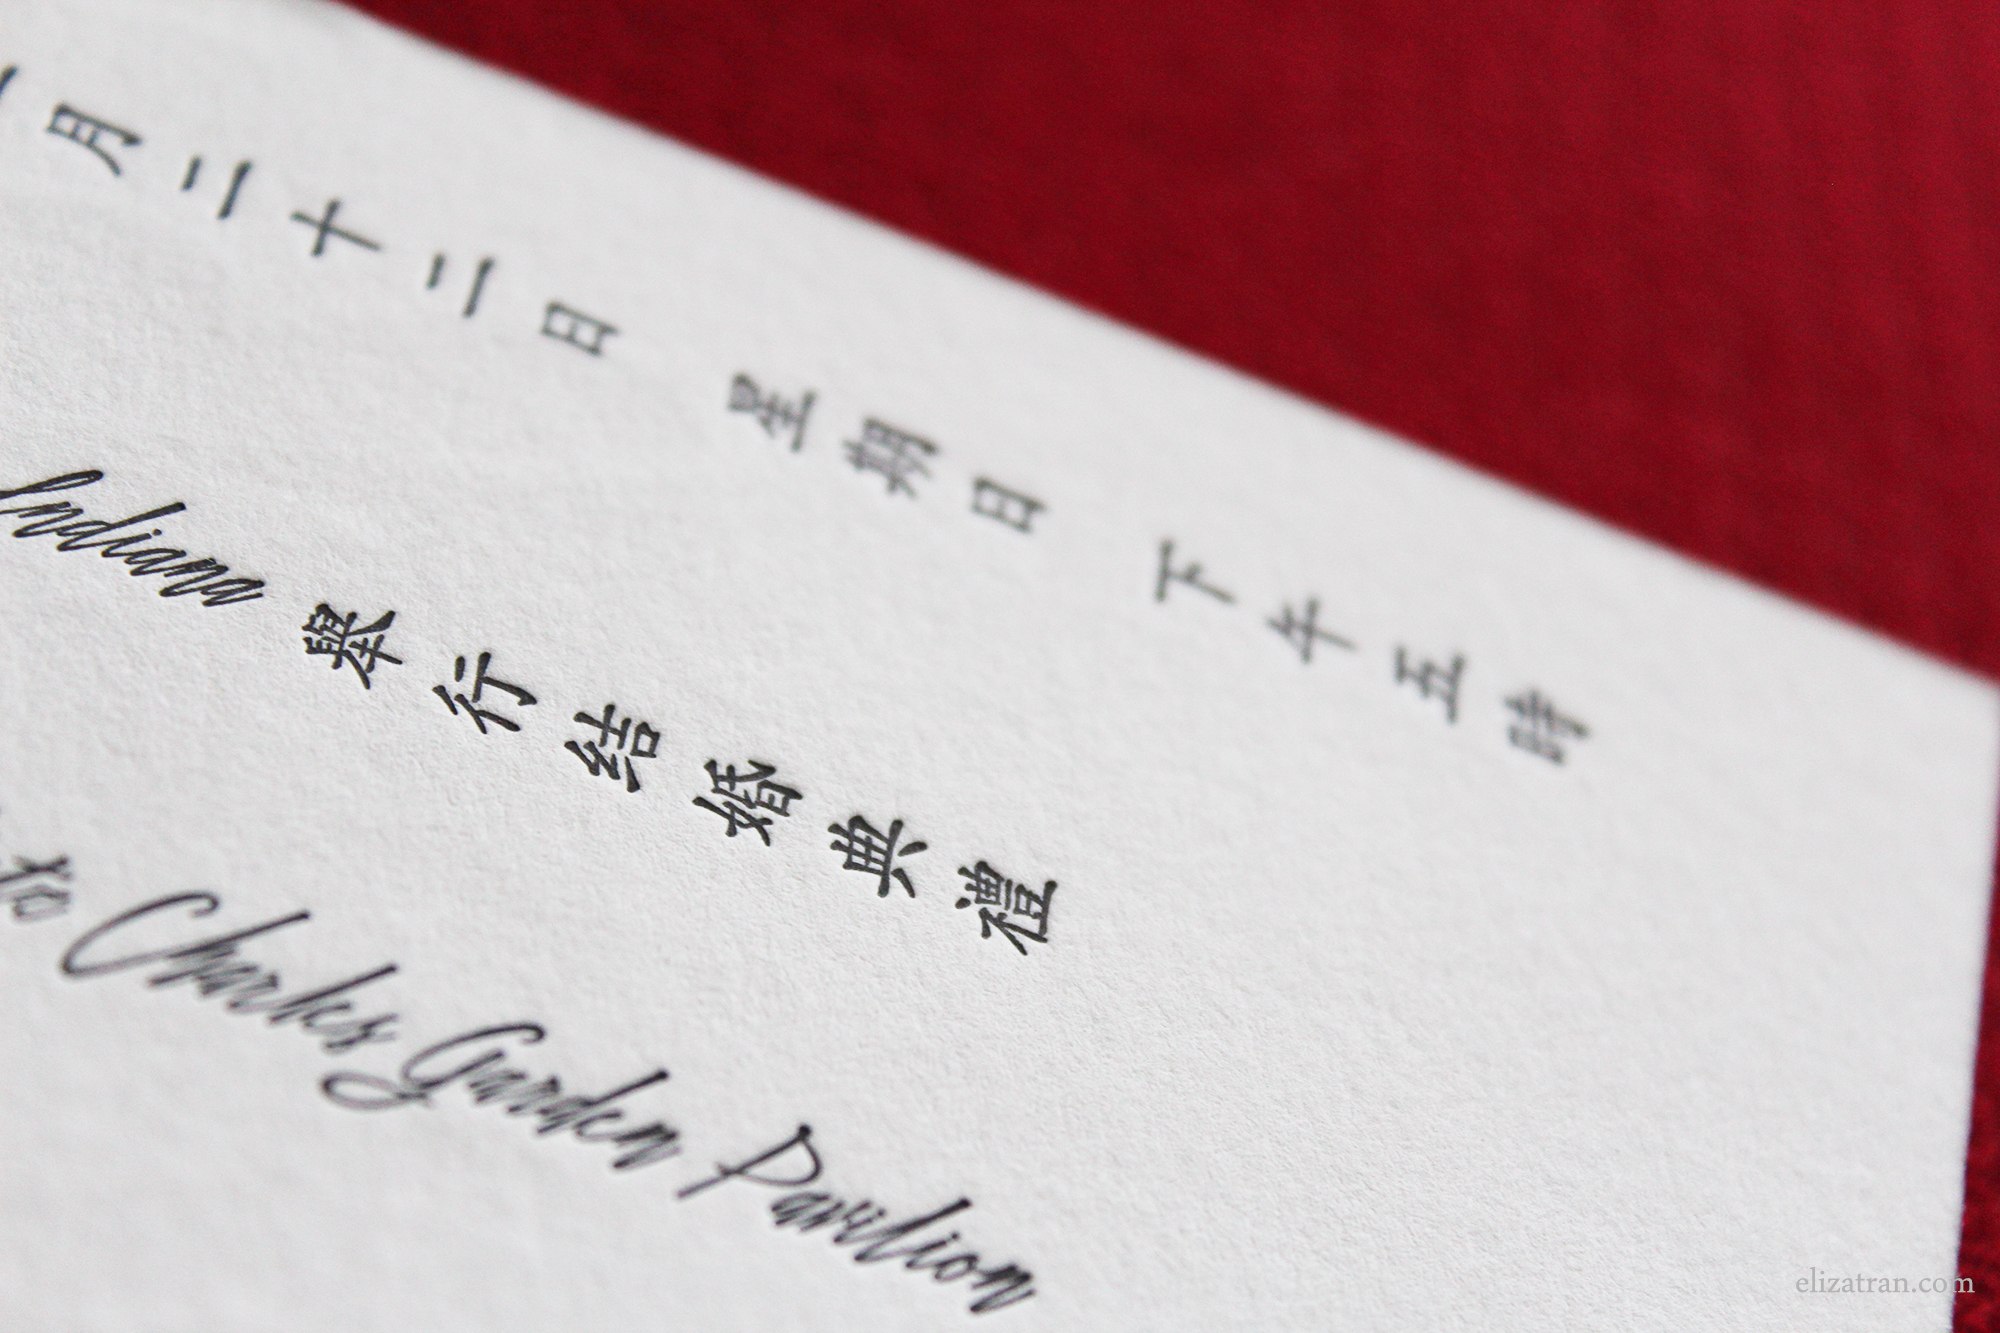 月二十二日 星期日 下午五時
Indiana 舉行結婚典禮
Charles Garden Pavilion
elizatran.com